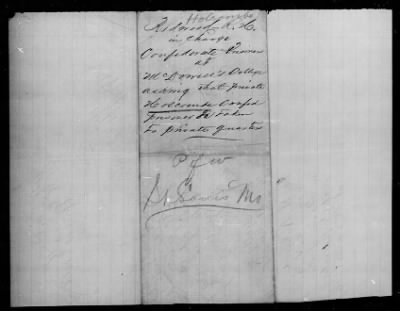 Holcombe
in charge
Confederate Prisoner
at
McDowell's College
asking that private
Holcombe Confed
Prisoner be taken
to private quarters
P of W
St Louis Mo